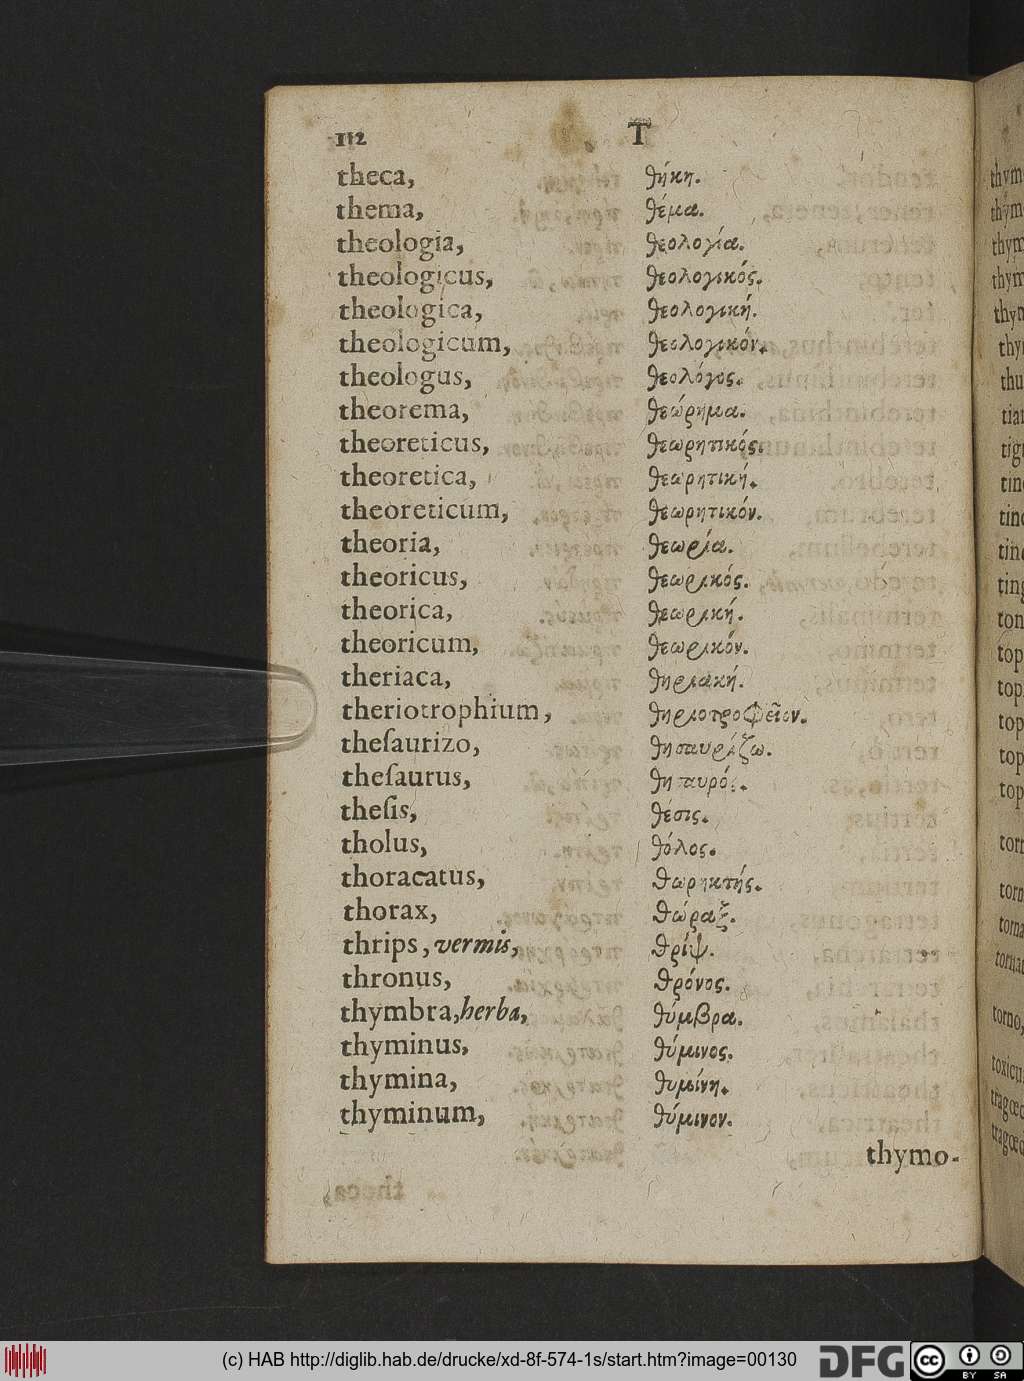 112 T
theca, θήκη.
thema, θέμα.
theologia, θεολογία.
theologicus, θεολογικός.
theologica, θεολογική.
theologicum, θεολογικόν.
theologus, θεολόγος.
theorema, θεώρημα.
theoreticus, θεωρητικός.
theoretica, θεωρητική.
theoreticum, θεωρητικόν.
theoria, θεωρία.
theoricus, θεωρικός.
theorica, θεωρική.
theoricum, θεωρικόν.
theriaca, θηριακή.
theriotrophium, θηριοτροφεῖον.
theſaurizo, θησαυρίζω.
theſaurus, θησαυρός.
theſis, θέσις.
tholus, θόλος.
thoracatus, θωρηκτής.
thorax, θώραξ.
thrips, vermis, θρίψ.
thronus, θρόνος.
thymbra, herba, θύμβρα.
thyminus, θύμινος.
thymina, θυμίνη.
thyminum, θύμινον.
thymo-
(c) HAB http://diglib.hab.de/drucke/xd-8f-574-1s/start.htm?image=00130
DFG
cc BY SA